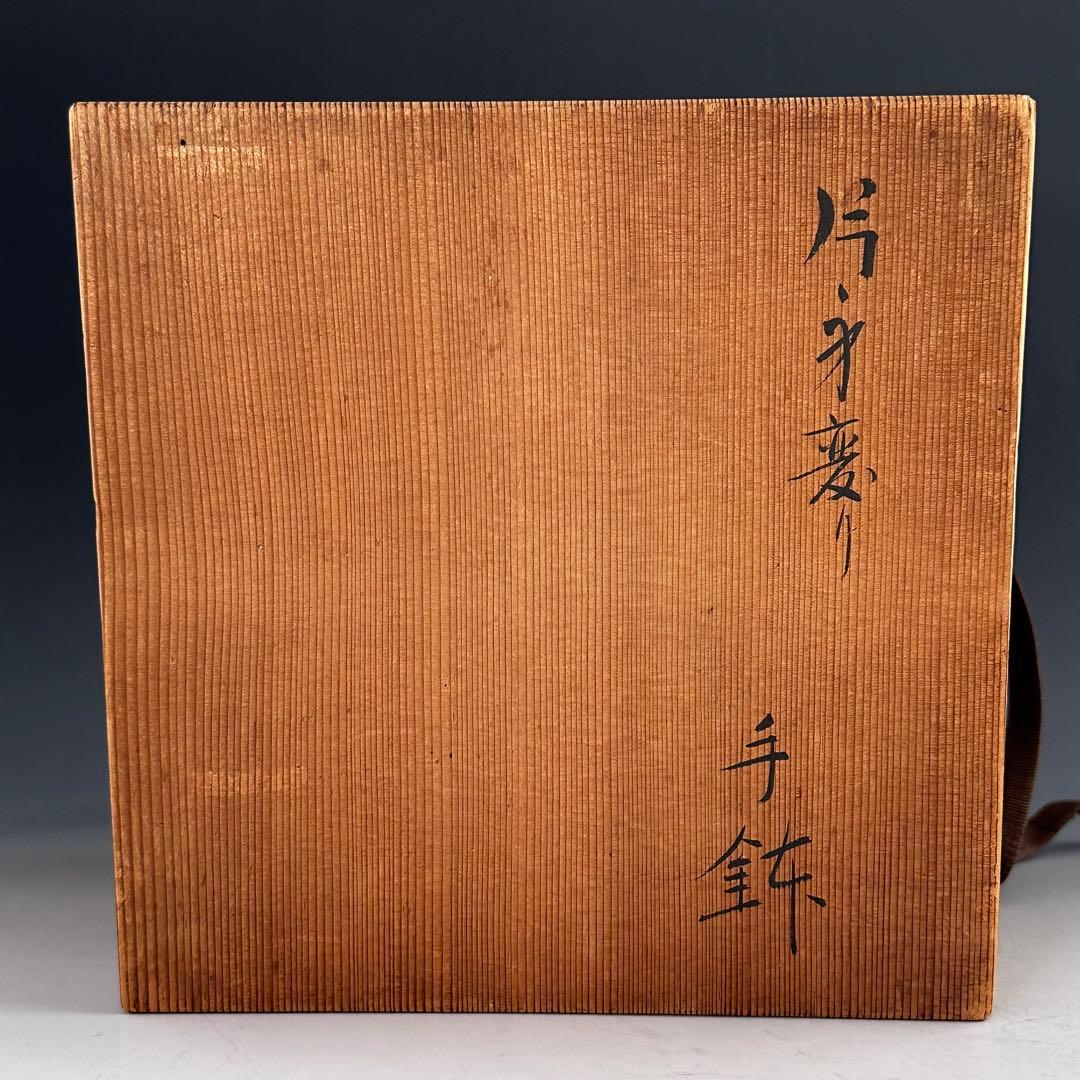 片身変り
手鉢